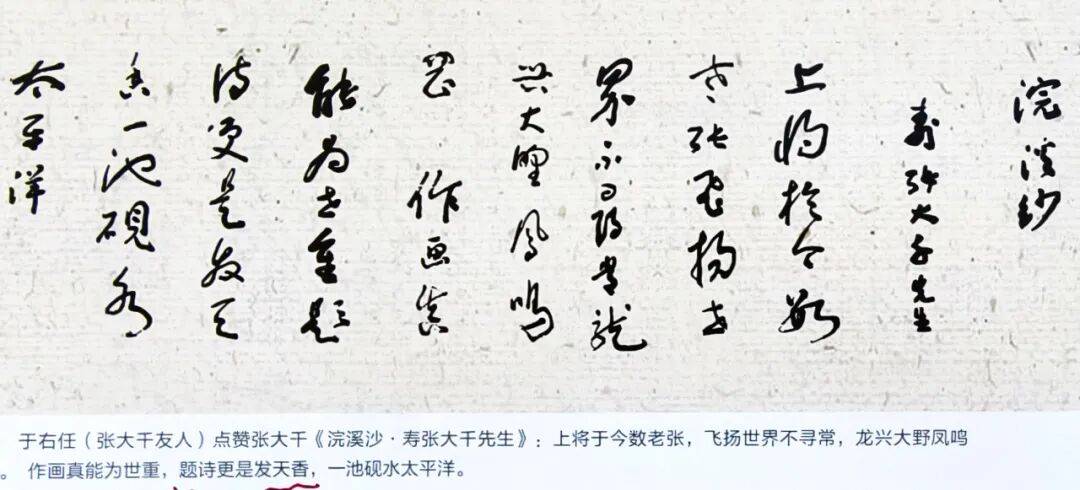 浣溪纱
寿张大千先生
上将于今数
老张飞扬世
界不寻常龙
兴大野凤鸣
冈 作画真
能为世重题
诗更是发天
香一池砚水
太平洋
于右任(张大千友人)点赞张大千《浣溪沙·寿张大千先生》:上将于今数老张,飞扬世界不寻常,龙兴大野凤鸣
。 作画真能为世重,题诗更是发天香,一池砚水太平洋。